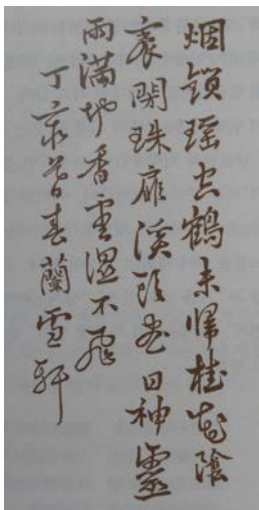 烟鎖瑶空鶴未歸桂花陰
裏閉珠扉溪頭尽日神靈
雨滿地香雲湿不飛
丁亥春蘭雪軒